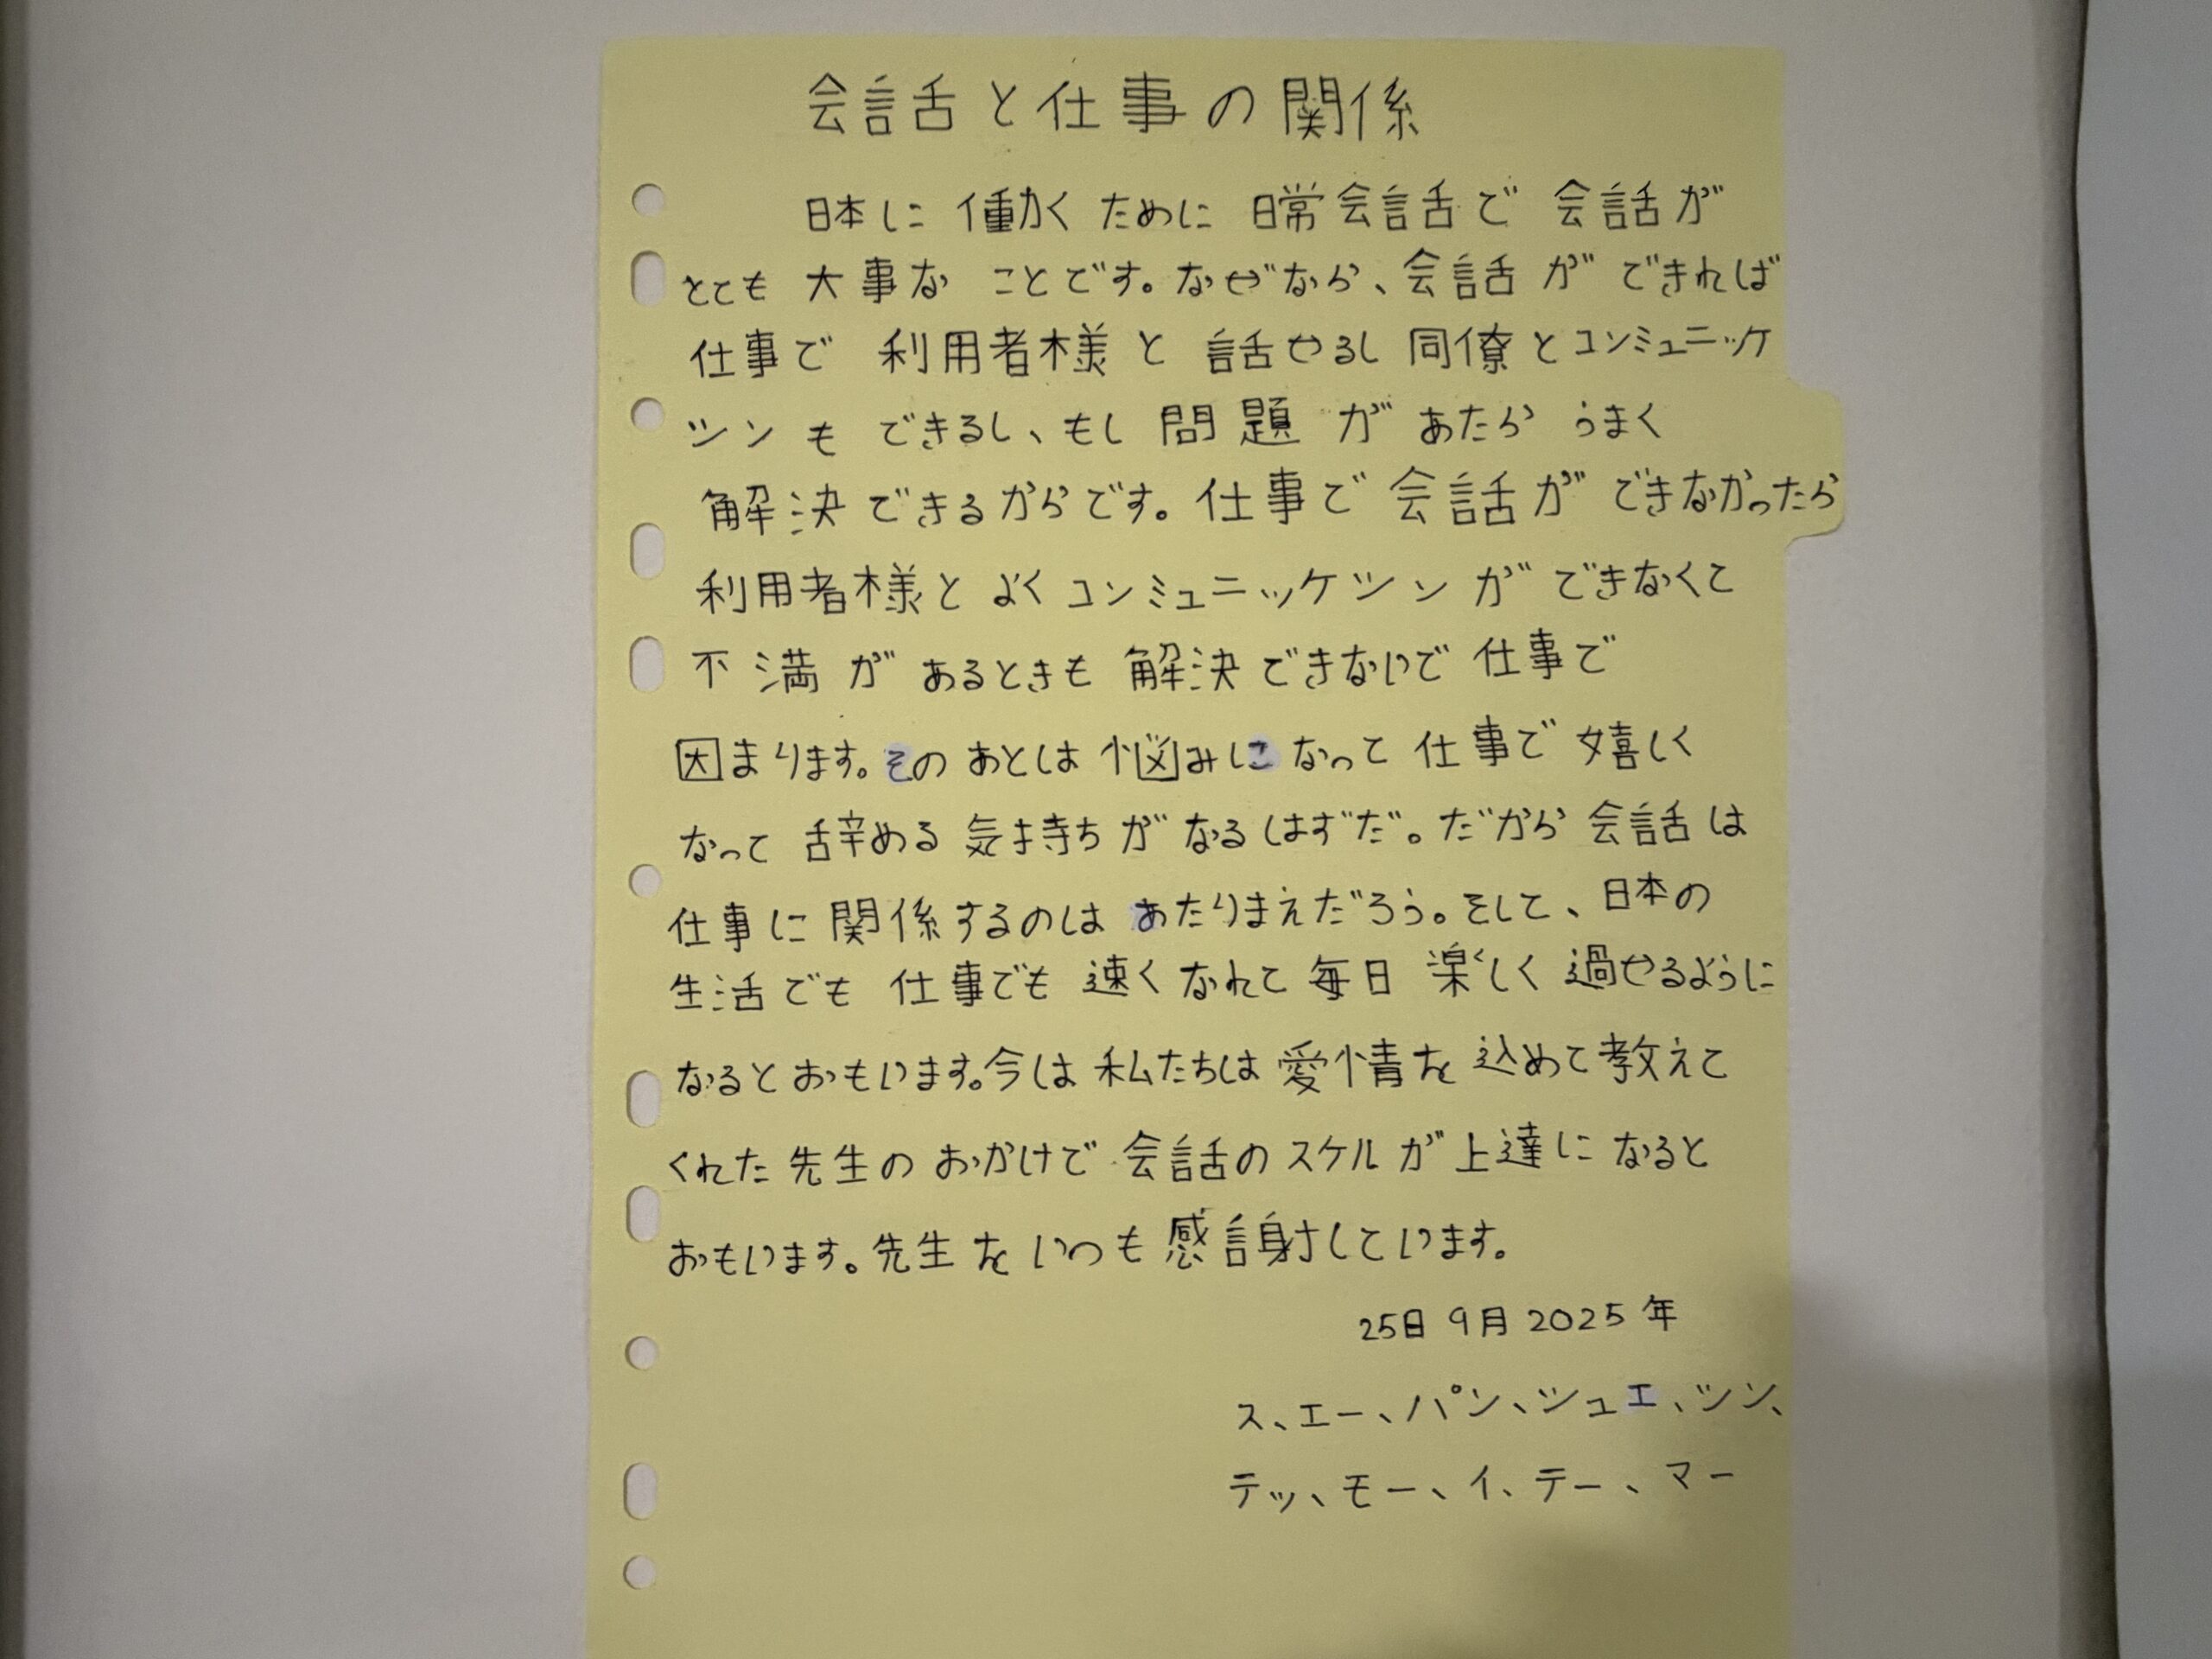 会話と仕事の関係
日本に働くために日常会話で会話が
とても大事なことです。なぜなら、会話ができれば
仕事で利用者様と話せるし同僚とコンミュニッケ
シンもできるし、もし問題があたらうまく
解決できるからです。仕事で会話ができなかったら
利用者様とよくコンミュニッケシンができなくて
不満があるときも解決できないで仕事で
困まります。そのあとは悩みになって仕事で嬉しく
なって辞める気持ちがなるはずだ。だから会話は
仕事に関係するのはあたりまえだろう。そして、日本の
生活でも仕事でも速くなれて毎日楽しく過せるように
なるとおもいます。今は私たちは愛情を込めて教えて
くれた先生のおかけで会話のスケルが上達になると
おもいます。先生をいつも感謝しています。
25日9月2025年
ス、エー、パン、シュエ、シン、
テッ、モー、イ、テー、マー